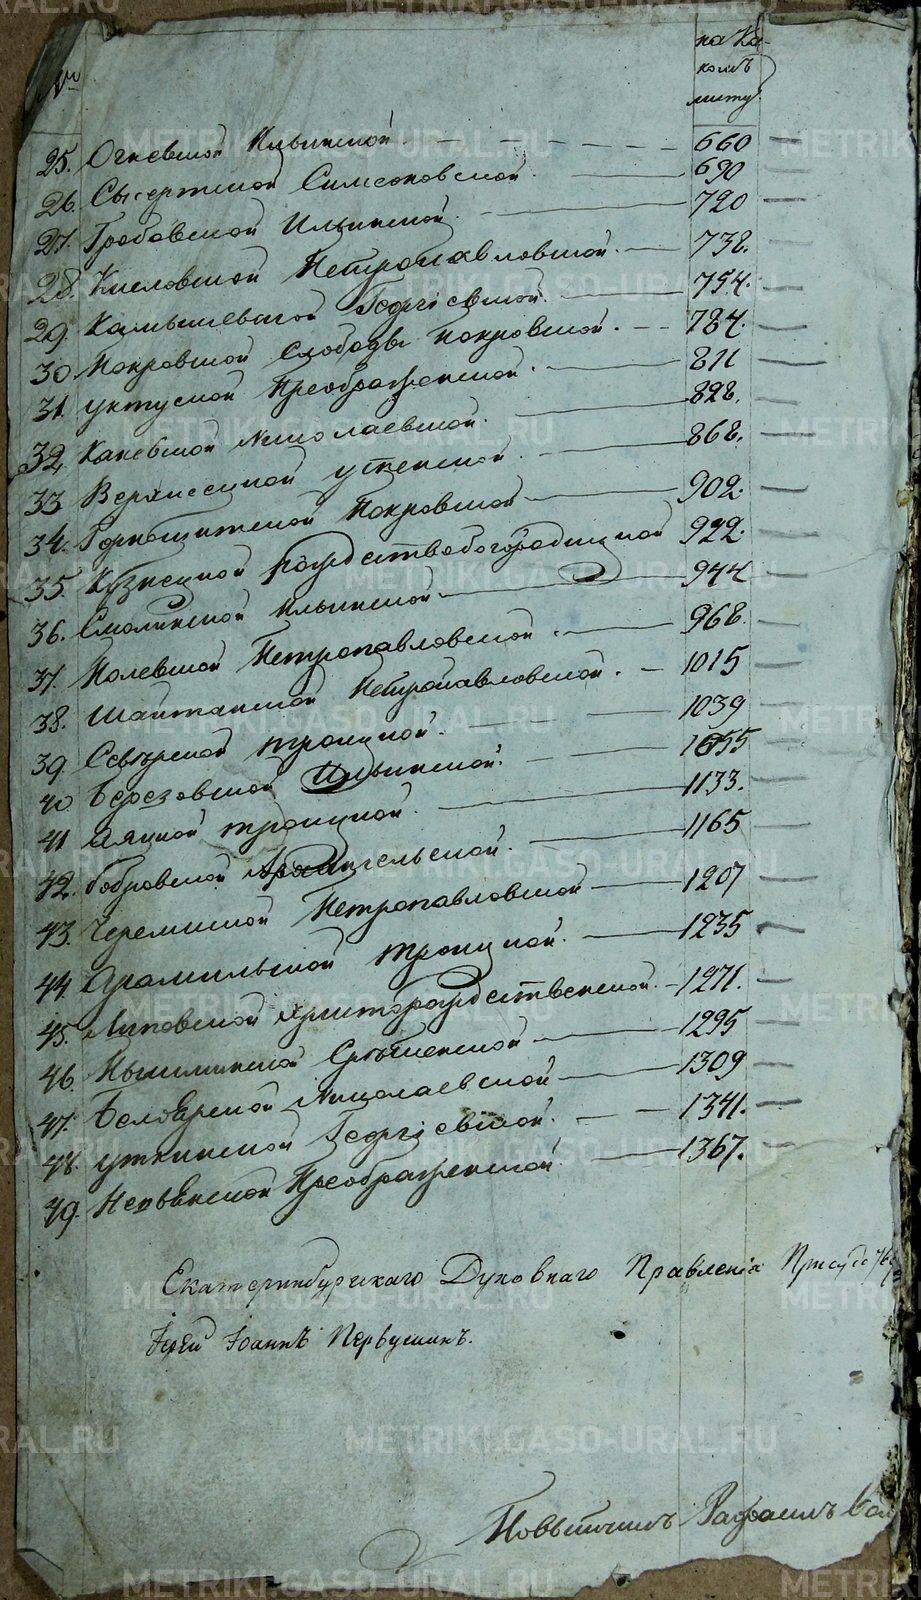 №
на ка-
комъ
листу.
25. Огневской Ильинской 660
26. Сысертской Симеоновской 690
27. Гробовской Ильинской 720
28. Кисловской Петропавловской. 738.
29. Камышевской Георгіевской 754.
30. Покровской Слободы Покровской. 784.
31. Уктусской Преображенской. 811
32. Каневской Николаевской. 828.
33. Верхнесецкой Успенской 868.
34. Горнощитской Покровской 902.
35. Кузнецкой Рождествобогородицкой 922.
36. Смолинской Ильинской 944
37. Полевской Петропавловской. 968.
38. Шайтанской Петропавловской. 1015
39. Северской Троицкой. 1039
40. Березовской Ильинской. 1055
41. Аяцкой Троицкой. 1133.
42. Бобровской Архангельской. 1165
43. Черемисской Петропавловской 1207
44. Арамильской Троицкой. 1235
45. Липовской Христорождественской. 1271.
46. Пышминской Срѣтенской 1295
47. Белоярской Николаевской 1309
48. Уткинской Георгіевской. 1341.
49. Невьянской Преображенской 1367.
Екатеринбургскаго Духовнаго Правленія
Іерей Іоаннъ Первушинъ.
Повытчикъ Рафаилъ
METRIKI.GASO-URAL.RU